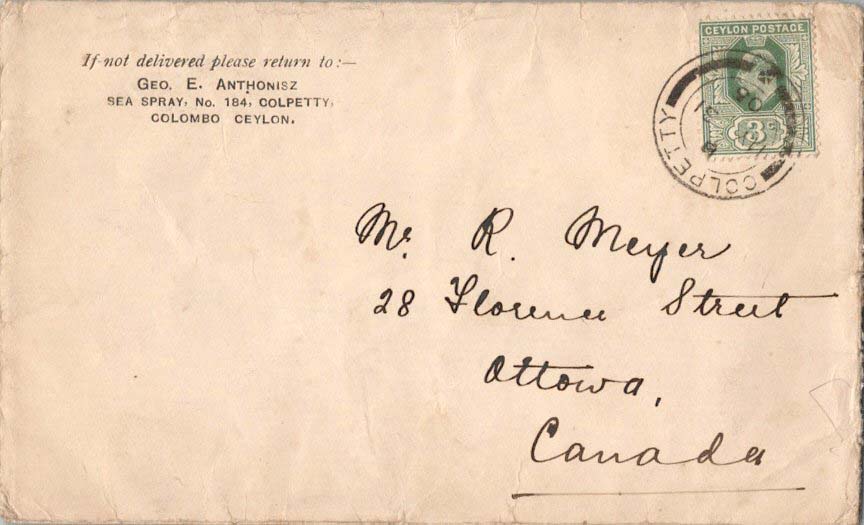 If not delivered please return to:—
GEO. E. ANTHONISZ
SEA SPRAY, No. 184, COLPETTY,
COLOMBO CEYLON.
CEYLON POSTAGE
3
COLPETTY
Mr. R. Meyer
28 Florence Street
Ottowa,
Canada